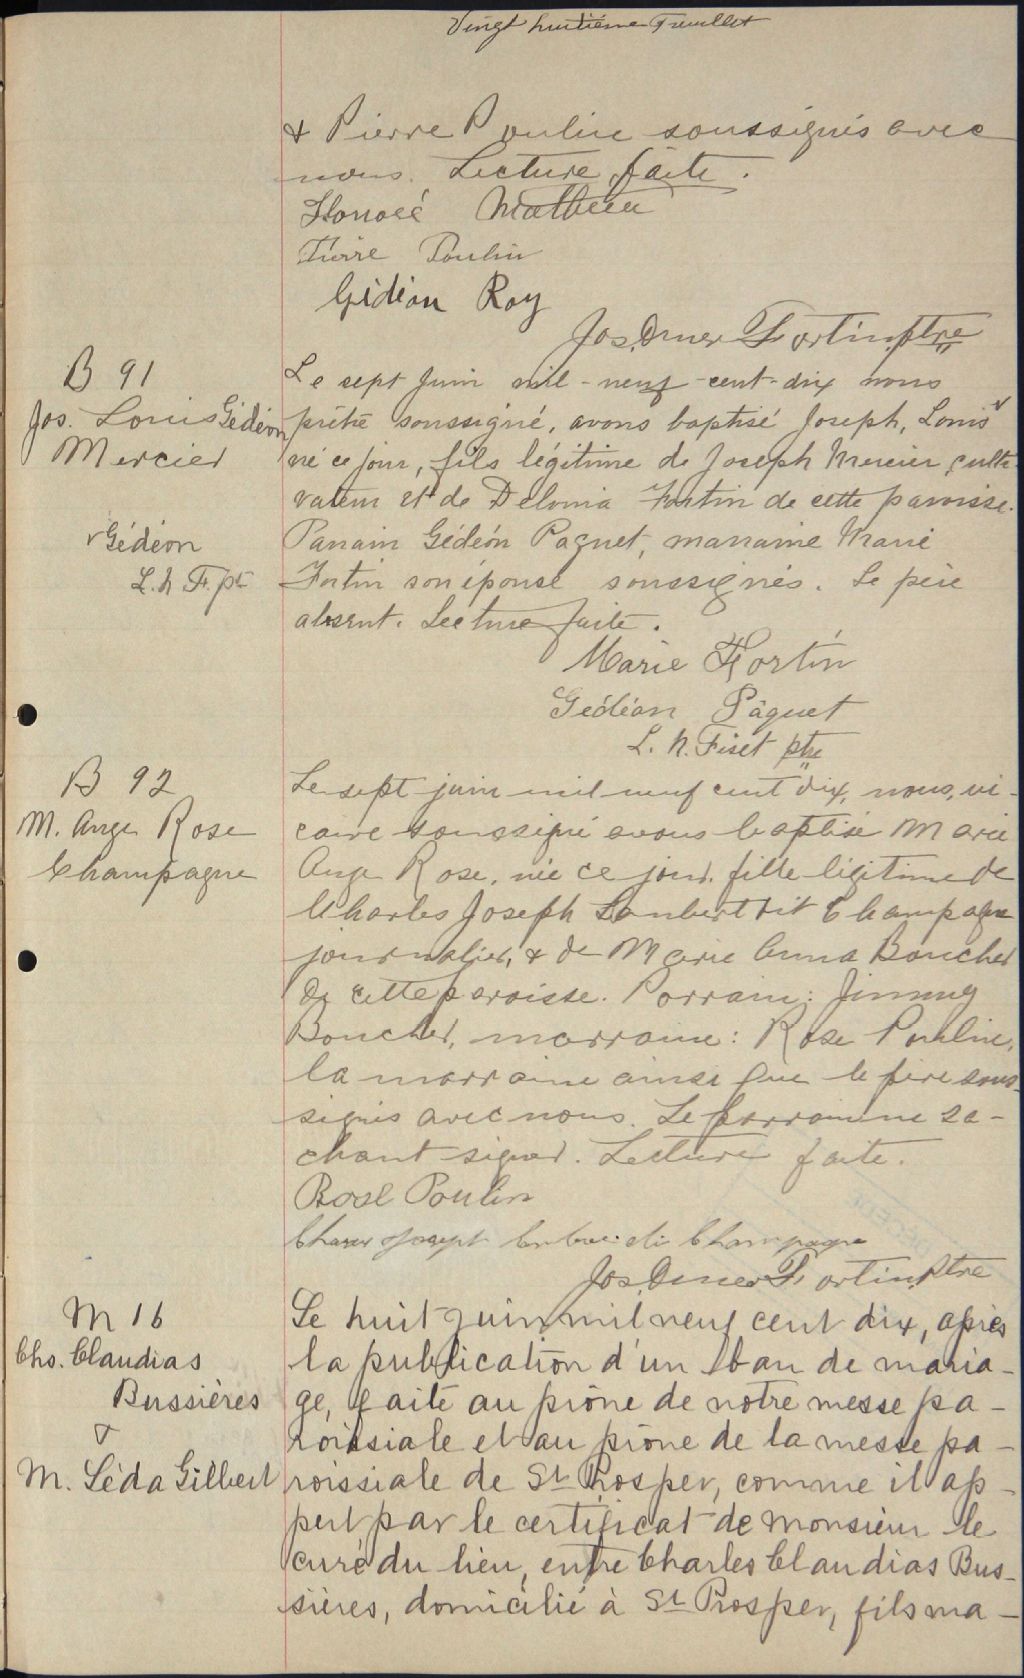 Vingt huitième Feuillet
& Pierre Poulin soussignés avec
nous. Lecture faite.
Honoré Mathieu
Pierre Poulin
Gédéon Roy
Jos. Omer Fortin, ptre
B 91
Jos. Louis Gédéon
Mercier
v Gédéon
L. N. F. pt
Le sept Juin mil-neuf-cent-dix nous
prêtre soussigné, avons baptisé Joseph, Louis v
né ce jour, fils légitime de Joseph Mercier culti-
vateur et de Delonia Fortin de cette paroisse.
Parrain Gédéon Paquet, marraine Marie
Fortin son épouse soussignés. Le père
absent. Lecture faite.
Marie Fortin
Gédéon Pâquet
L. N. Fiset ptre
B 92
M. Ange Rose
Champagne
Le sept juin mil neuf cent dix, nous, vi-
caire soussigné avons baptisé Marie
Ange Rose, née ce jour, fille légitime de
Charles Joseph Lambert dit Champagne
journalier, & de Marie Anna Boucher
de cette paroisse. Parrain: Jimmy
Boucher, marraine: Rose Poulin,
la marraine ainsi que le père sous-
signés avec nous. Le parrain ne sa-
chant signer. Lecture faite.
Rose Poulin
Joseph Champagne
Jos. Omer Fortin, Ptre
M 16
Chs. Claudias
Bussières
&
M. Léda Gilbert
Le huit juin mil neuf cent dix, après
la publication d'un ban de maria-
ge, faite au prône de notre messe pa-
roissiale et au prône de la messe pa-
roissiale de St Prosper, comme il ap-
pert par le certificat de monsieur le
curé du lieu, entre Charles Claudias Bus-
sières, domicilié à St Prosper, fils ma-